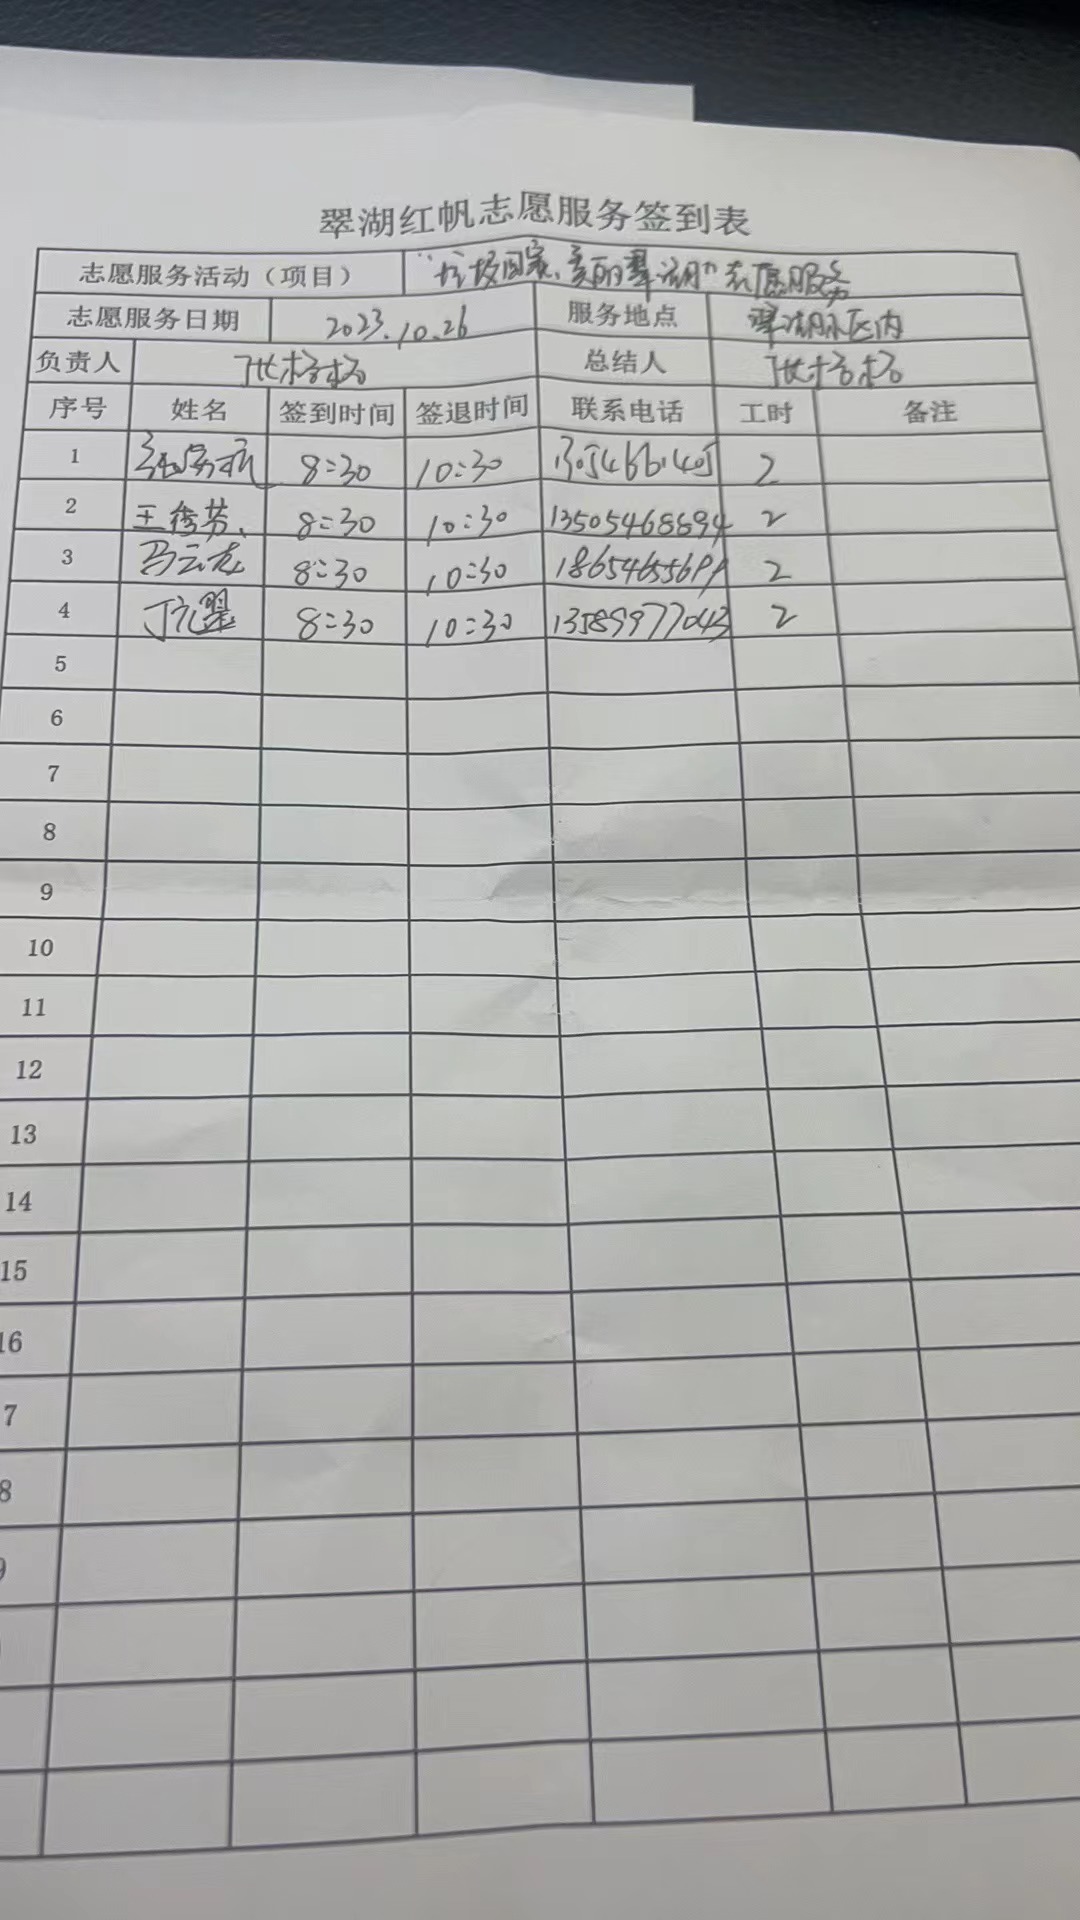 翠湖红帆志愿服务签到表
志愿服务活动（项目） “垃圾回家、美丽翠湖”志愿服务
志愿服务日期 2023.10.26 服务地点 翠湖小区内
负责人 张 总结人 张
序号 姓名 签到时间 签退时间 联系电话 工时 备注
1 8:30 10:30 2
2 王秀芬 8:30 10:30 13505468694 2
3 马云龙 8:30 10:30 2
4 丁元翠 8:30 10:30 13589977043 2
5
6
7
8
9
10
11
12
13
14
15
16
7
8
9